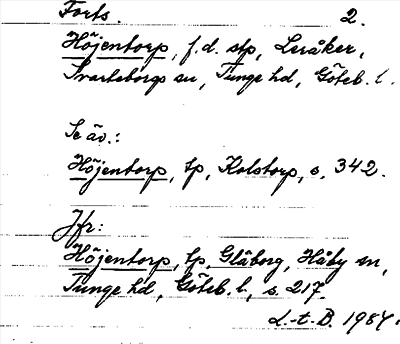 Forts. 2.
Höjentorp, f.d. stp, Leråker,
Svarteborgs sn, Tunge hd, Göteb. l.
Se äv.:
Höjentorp, tp, Kolstorp, s. 342.
Jfr:
Höjentorp, tp, Glåborg, Håby sn,
Tunge hd, Göteb. l., s. 217.
L.-t. B. 1984.